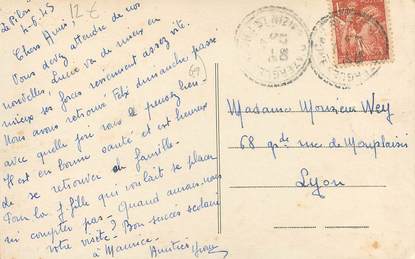 Le Pilat
4-6-45
12€
Chers Amis,
Vous devez attendre de nos
nouvelles, Lucie va de mieux en
mieux ses forces reviennent assez vite.
Nous avons retrouvé Félix dimanche passé
avec quelle joie vous le pensez bien.
Il est en bonne santé et est heureux
de se retrouver en famille.
Pour la j. fille qui voulait se placer
ni compter pas - Quand aurons-nous
votre visite? Bon succès scolaire
à Maurice - Amitiés
Madame Monsieur Wey
68 gde rue de Monplaisir
Lyon